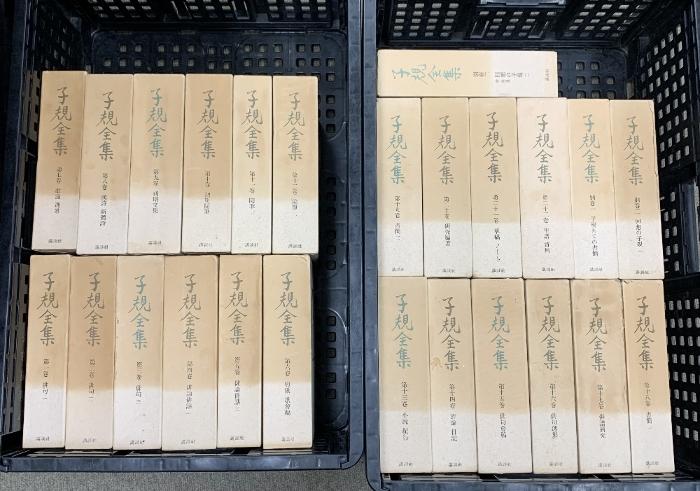 子規全集 第七巻 講談社
子規全集 第八巻 漢詩 新體詩 講談社
子規全集 第九巻 初期文集 講談社
子規全集 第十巻 初期随筆 講談社
子規全集 第十一巻 随筆一 講談社
子規全集 第十二巻 随筆二 講談社
子規全集 第一巻 俳句一 講談社
子規全集 第二巻 俳句二 講談社
子規全集 第三巻 俳句三 講談社
子規全集 第四巻 俳論俳話一 講談社
子規全集 第五巻 俳論俳話二 講談社
子規全集 第六巻 講談社
子規全集 別巻三 回想の子規二 講談社
子規全集 第十九巻 書簡二 講談社
子規全集 第二十巻 研究編著 講談社
子規全集 第二十一巻 草稿 ノート 講談社
子規全集 第二十二巻 年譜 資料 講談社
子規全集 別巻一 子規あての書簡 講談社
子規全集 別巻二 回想の子規一 講談社
子規全集 第十三巻 小説 紀行 講談社
子規全集 第十四巻 評論 日記 講談社
子規全集 第十五巻 俳句會稿 講談社
子規全集 第十六巻 俳句選集 講談社
子規全集 第十七巻 講談社
子規全集 第十八巻 書簡一 講談社